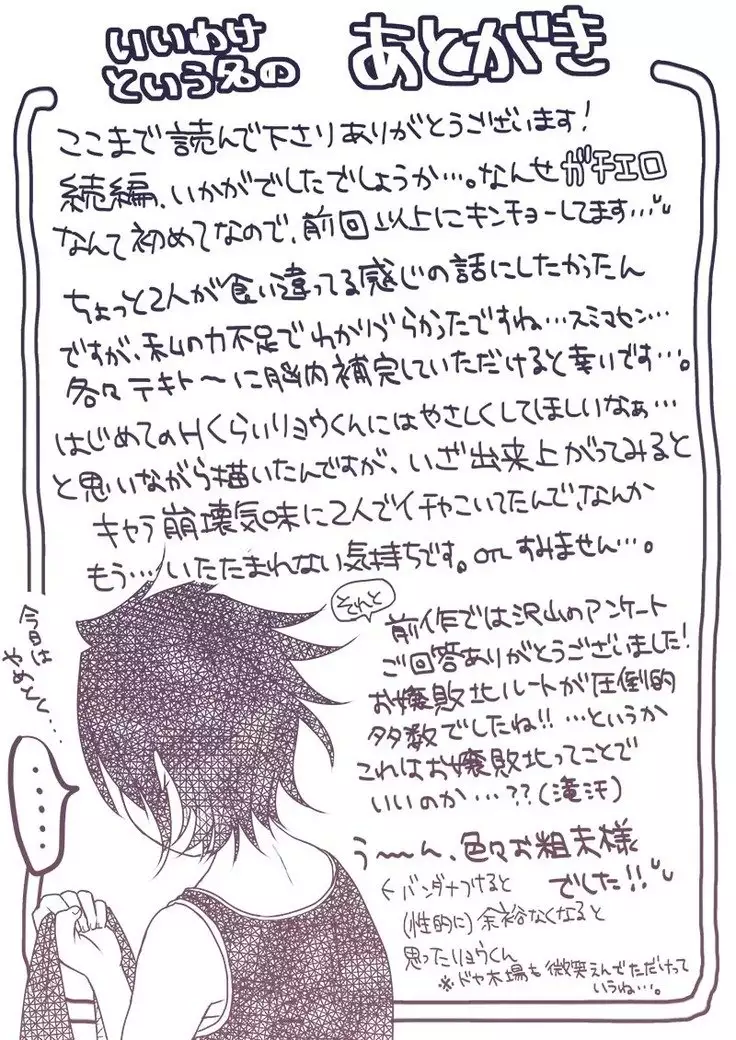 いいわけ
という名の
あとがき
ここまで読んで下さりありがとうございます!
続編、いかがでしたでしょうか…。なんせガチエロ
なんて初めてなので、前回以上にキンチョーしてます…
ちょっと2人が食い違ってる感じの話にしたかったん
ですが、私の力不足でわかりづらかったですね…スミマセン…
各々テキト〜に脳内補完していただけると幸いです…。
はじめてのHくらいリョウくんにはやさしくしてほしいなぁ…
と思いながら描いたんですが、いざ出来上がってみると
キャラ崩壊気味に2人でイチャこいてたんで、なんか
もう…いたたまれない気持ちです。orz すみません…。
それと
前作では沢山のアンケート
ご回答ありがとうございました!
お嬢敗北ルートが圧倒的
多数でしたね!! …というか
これはお嬢敗北ってことで
いいのか…??(滝汗)
う〜ん、色々お粗末様
でした!!
←バンダナつけると
(性的に)余裕なくなると
思ったリョウくん
※ドヤ木場も微笑えんでただけって
いうね…。
今日は
やめとく…
・・・・